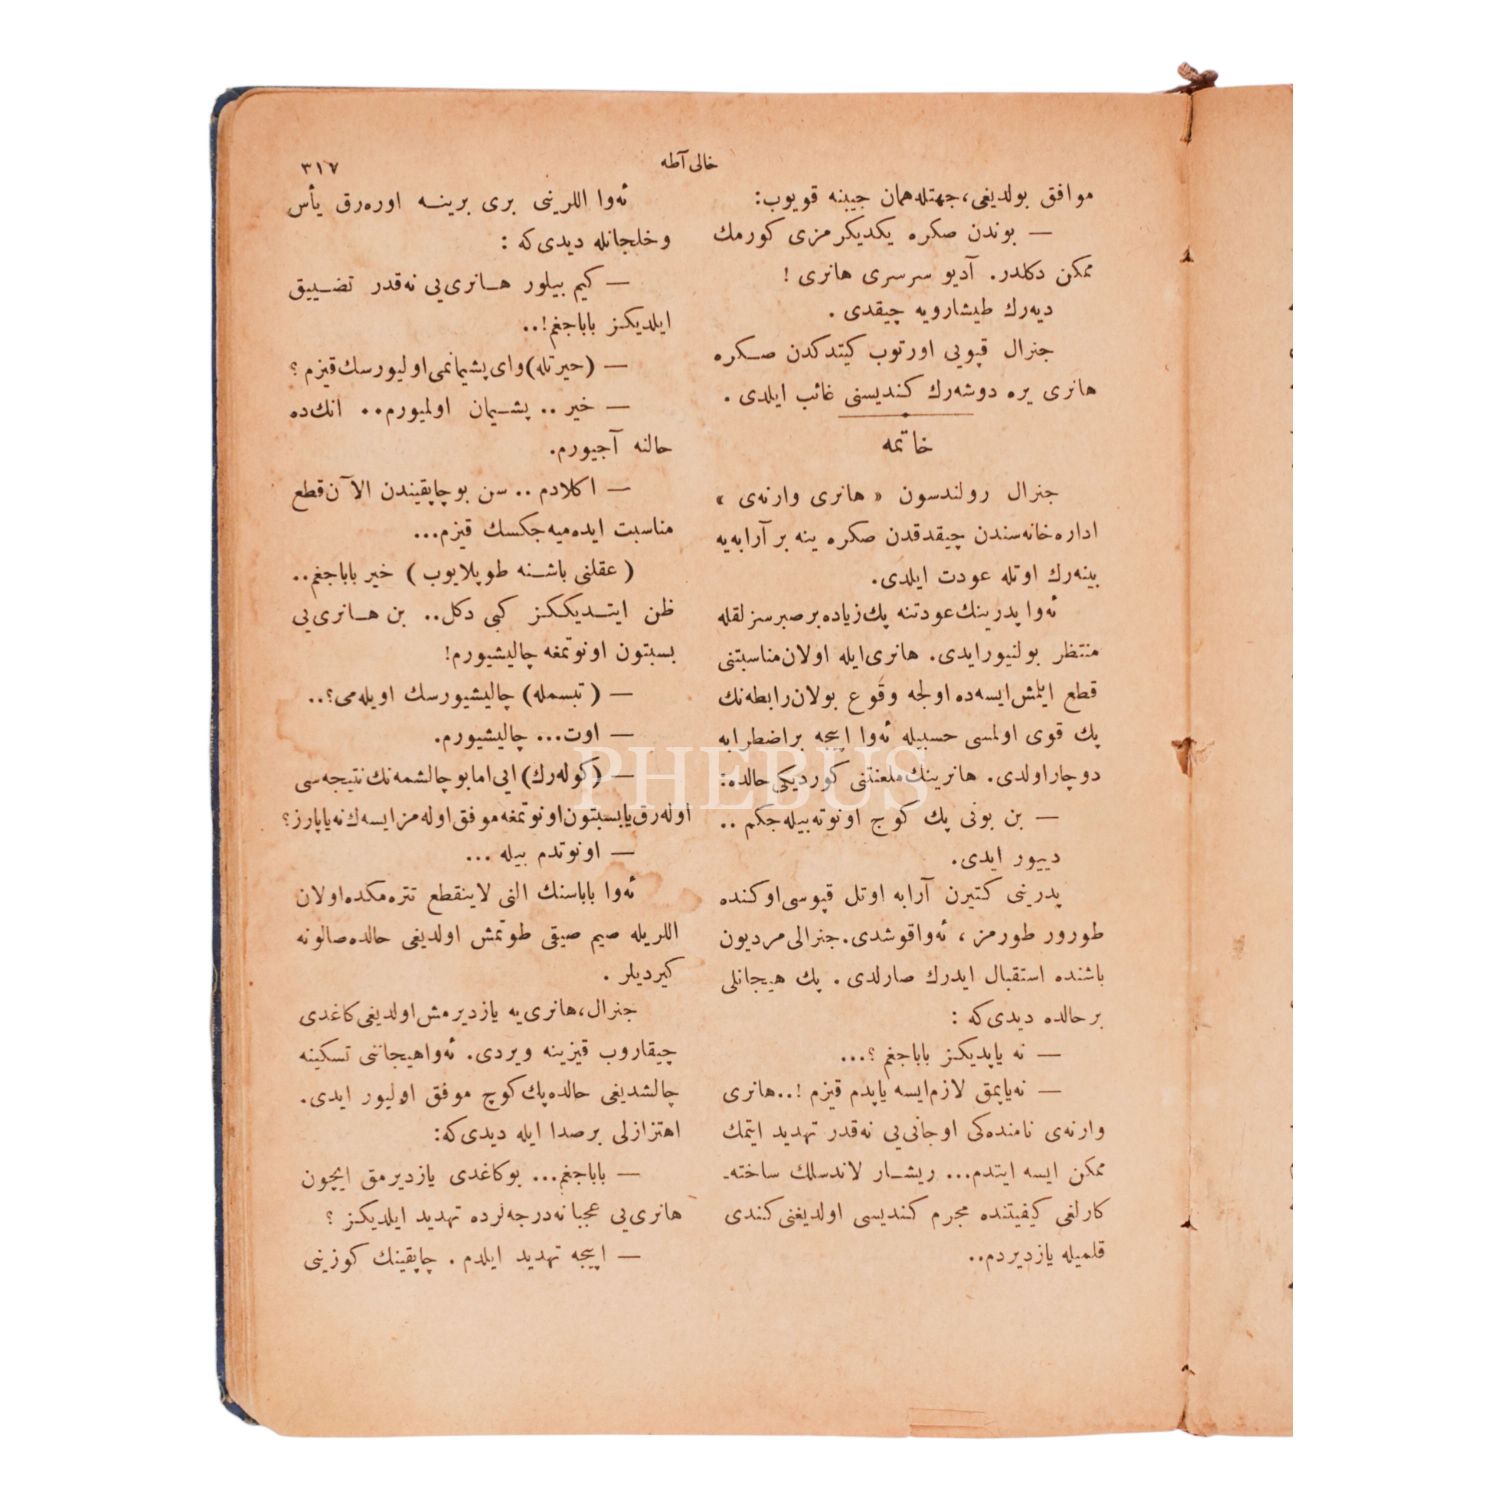 خالی آطه
٣١٧
موافق بولدیغی، جهتله همان جیبنه قویوب:
— بوندن صکره یکدیکرمزی کورمك
ممکن دکلدر. آدیو سرسری هانری !
دیەرك طیشارویه چیقدی .
جنرال قپویی اورتوب کیتدکدن صـکره
هانری یره دوشەرك کندیسنی غائب ایلدی .
خاتمه
جنرال رولندسون « هانری وارنەی »
ادارەخانەسندن چیقدقدن صکره ینه بر آرابەیه
بینەرك اوتله عودت ایلدی.
ئەوا پدرینك عودتنه پك زیاده بر صبرسزلقله
منتظر بولنیور ایدی. هانری ایله اولان مناسبتنی
قطع ایلمش ایسەده اولجه وقوع بولان رابطەنك
پك قوی اولمسی حسبیله ئەوا اپیجه بر اضطرابه
دوچار اولدی. هانرینك ملعنتنی کوردیکی حالده:
— بن بونی پك کوج اونوتەبیلەجکم ..
دییور ایدی.
پدرینی کتیرن آرابه اوتل قپوسی اوکنده
طورور طورمز ، ئەوا قوشدی. جنرالی مردیون
باشنده استقبال ایدرك صارلدی . پك هیجانلی
بر حالده دیدی که :
— نه یاپدیکز باباجغم ؟...
— نه یاپمق لازم ایسه یاپدم قیزم !.. هانری
وارنەی نامندەکی اوجانی یی نەقدر تهدید ایتمك
ممکن ایسه ایتدم... ریشـار لاندسلك ساختە-
کارلغی کیفیتنده مجرم کندیسی اولدیغنی کندی
قلمیله یازدیردم..
ئەوا اللرینی بری برینــه اورەرق یأس
و خلجانله دیدی که :
— کیم بیلور هـانری یی نەقدر تضـییق
ایلدیکز باباجغم!..
— (حیرتله) وای پشیمانمی اولیورسك قیزم ؟
— خیر .. پشـیمان اولمیورم.. انك ده
حالنه آجیورم.
— اکلادم .. سن بو چاپقیندن الآن قطع
مناسبت ایدەمیەجکسك قیزم...
( عقلنی باشـنه طوپلایوب ) خیر باباجغم..
ظن ایتـدیککز کبی دکل.. بن هـانری یی
بسبتون اونوتمغه چالیشیورم!
— ( تبسمله) چالیشیورسك اویله می؟..
— اوت... چالیشیورم.
— (کولەرك) ایی اما بو چالشمەنك نتیجەسی
اولەرق یا بسبتون اونوتمغه موفق اولەمز ایسەك نه یاپارز؟
— اونوتدم بیله ...
ئەوا باباسنك النی لاینقطع تترەمکده اولان
اللریله صیم صیقی طوتمش اولدیغی حالده صالونه
کیردیلر .
جنرال، هانری یه یازدیرمش اولدیغی کاغدی
چیقاروب قیزینه ویردی. ئەوا هیجاننی تسکینه
چالشدیغی حالده پك کوچ موفق اولیور ایدی.
اهتزازلی بر صدا ایله دیدی که:
— باباجغم... بو کاغدی یازدیرمق ایچون
هانری یی عجبا نه درجەلرده تهدید ایلدیکز ؟
— اپیجه تهدید ایلدم . چاپقینك کوزینی
PHEBUS